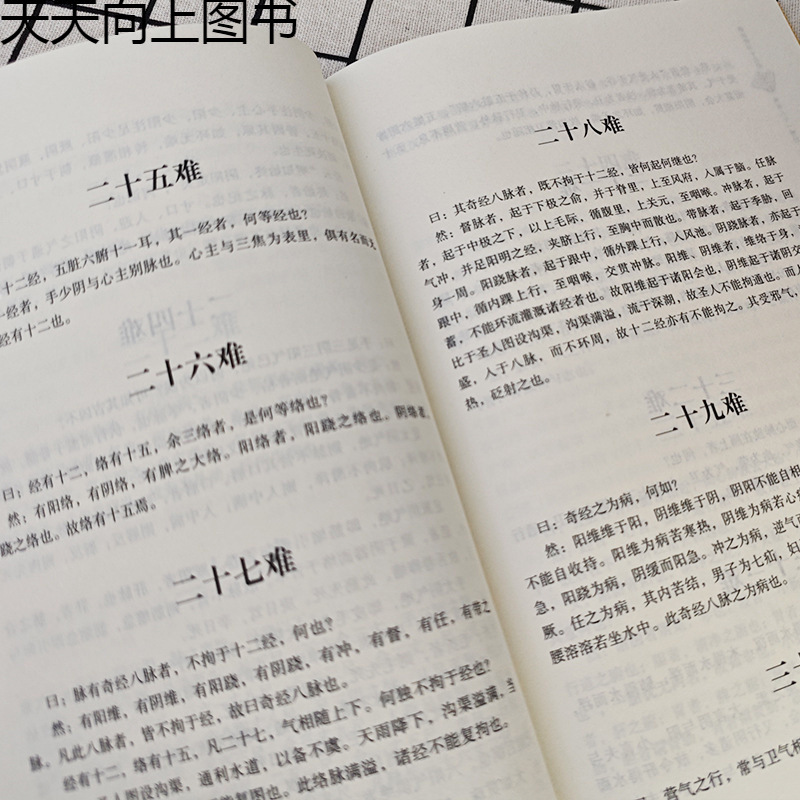 天天向上图书
二十五难
十二经，五脏六腑十一耳，其一经者，何等经也？
一经者，手少阴与心主别脉也。心主与三焦为表里，俱有名而无
经有十二也。
二十六难
曰：经有十二，络有十五，余三络者，是何等络也？
然：有阳络，有阴络，有脾之大络。阳络者，阳跷之络也。阴络者，
跷之络也。故络有十五焉。
二十七难
曰：脉有奇经八脉者，不拘于十二经，何也？
然：有阳维，有阴维，有阳跷，有阴跷，有冲，有督，有任，有带之
脉。凡此八脉者，皆不拘于经，故曰奇经八脉也。
经有十二，络有十五，凡二十七，气相随上下。何独不拘于经也？
圣人图设沟渠，通利水道，以备不虞。天雨降下，沟渠溢满，当
能复图也。此络脉满溢，诸经不能复拘也。
二十八难
曰：其奇经八脉者，既不拘于十二经，皆何起何继也？
然：督脉者，起于下极之俞，并于脊里，上至风府，入属于脑。任脉
者，起于中极之下，以上毛际，循腹里，上关元，至咽喉。冲脉者，起于
气冲，并足阳明之经，夹脐上行，至胸中而散也。带脉者，起于季胁，回
身一周。阳跷脉者，起于跟中，循外踝上行，入风池。阴跷脉者，亦起于
跟中，循内踝上行，至咽喉，交贯冲脉。阳维、阴维者，维络于身，
蓄，不能环流灌溉诸经者也。故阳维起于诸阳会也，阴维起于诸阴交
比于圣人图设沟渠，沟渠满溢，流于深湖，故圣人不能拘通也。而人
盛，入于八脉，而不环周，故十二经亦有不能拘之。其受邪气，
热，砭射之也。
二十九难
曰：奇经之为病，何如？
然：阳维维于阳，阴维维于阴，阴阳不能自相
不能自收持。阳维为病苦寒热，阴维为病苦心
急，阳跷为病，阴缓而阳急。冲之为病，逆气
厥。任之为病，其内苦结，男子为七疝，妇
腰溶溶若坐水中。此奇经八脉之为病也。
三十
营气之行，常与卫气相